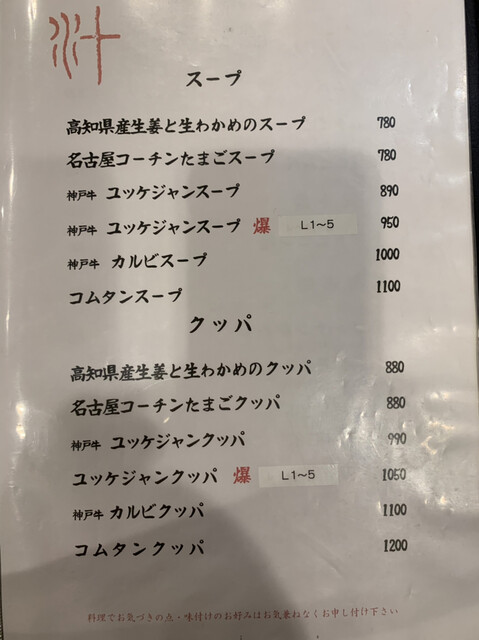 汁
スープ
高知県産生姜と生わかめのスープ 780
名古屋コーチンたまごスープ 780
神戸牛 ユッケジャンスープ 890
神戸牛 ユッケジャンスープ 爆 L1～5 950
神戸牛 カルビスープ 1000
コムタンスープ 1100
クッパ
高知県産生姜と生わかめのクッパ 880
名古屋コーチンたまごクッパ 880
神戸牛 ユッケジャンクッパ 990
ユッケジャンクッパ 爆 L1～5 1050
神戸牛 カルビクッパ 1100
コムタンクッパ 1200
料理でお気づきの点・味付けのお好みはお気兼ねなくお申し付け下さい